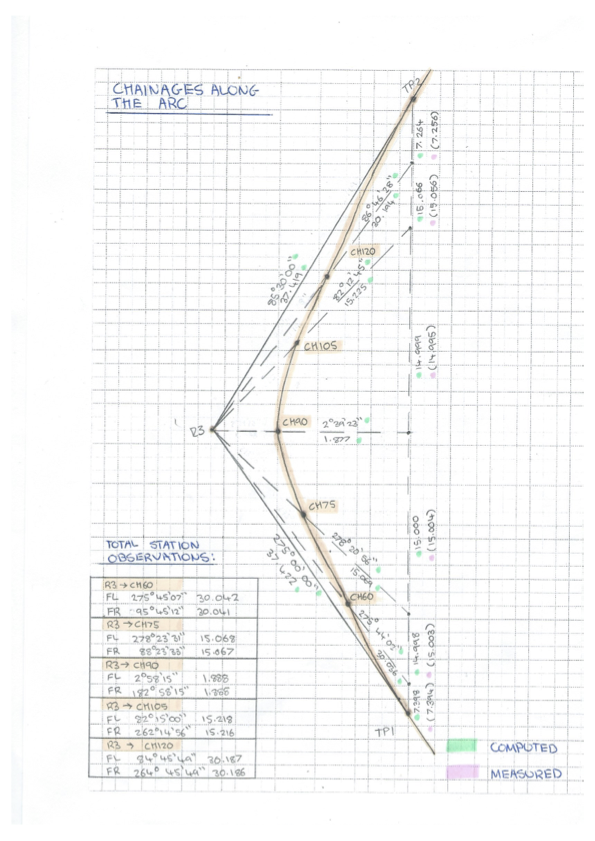 CHAINAGES ALONG
THE ARC
TP2
7.264
(7.256)
15.066
(15.056)
86° 46' 28"
30.194
CH120
82° 12' 45"
15.225
85° 30' 00"
37.419
CH105
14.999
(14.995)
R3
CH90
2° 39' 23"
1.877
CH75
278° 20' 56"
15.069
15.000
(15.004)
275° 00' 00"
37.422
CH60
275° 44' 02"
30.036
14.998
(15.003)
7.398
(7.394)
TP1
TOTAL STATION
OBSERVATIONS:
R3 → CH60
FL 275° 45' 07" 30.042
FR 95° 45' 12" 30.041
R3 → CH75
FL 278° 23' 31" 15.068
FR 88° 23' 33" 15.067
R3 → CH90
FL 2° 58' 15" 1.888
FR 182° 58' 15" 1.888
R3 → CH105
FL 82° 15' 00" 15.218
FR 262° 14' 56" 15.216
R3 → CH120
FL 84° 45' 49" 30.187
FR 264° 45' 49" 30.186
COMPUTED
MEASURED